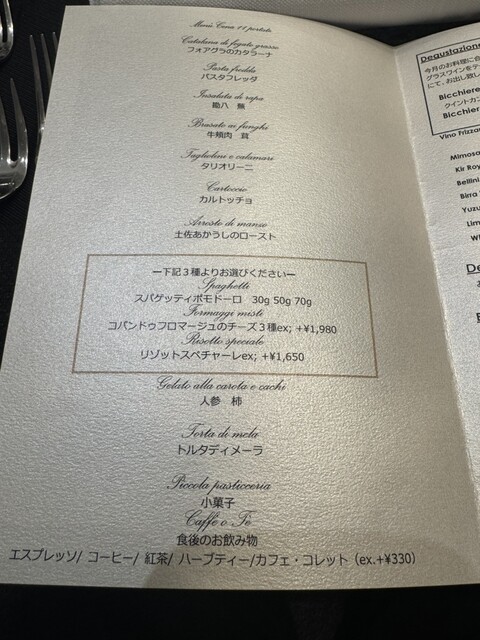 Menù Cena 11 portate
Catalana di fegato grasso
フォアグラのカタラーナ
Pasta fredda
パスタフレッダ
Insalata di rapa
鋤八 蕪
Brasato ai funghi
牛頬肉 茸
Tagliolini e calamari
タリオリーニ
Cartoccio
カルトッチョ
Arrosto di manzo
土佐あかうしのロースト
ー下記３種よりお選びくださいー
Spaghetti
スパゲッティポモドーロ 30g 50g 70g
Formaggi misti
コパンドゥフロマージュのチーズ３種ex; +¥1,980
Risotto speciale
リゾットスペチャーレex; +¥1,650
Gelato alla carota e cachi
人参 柿
Torta di mela
トルタディメーラ
Piccola pasticceria
小菓子
Caffè o Tè
食後のお飲み物
エスプレッソ/ コーヒー/ 紅茶/ ハーブティー/カフェ・コレット（ex.+¥330）
Degustazione
今月のお料理に合
グラスワインをテ
にて、お出し致し
Bicchiere
クイントカン
Bicchier
Vino Frizza
Mimosa
Kir Roy
Bellini
Birra
Yuzu
Lim
De